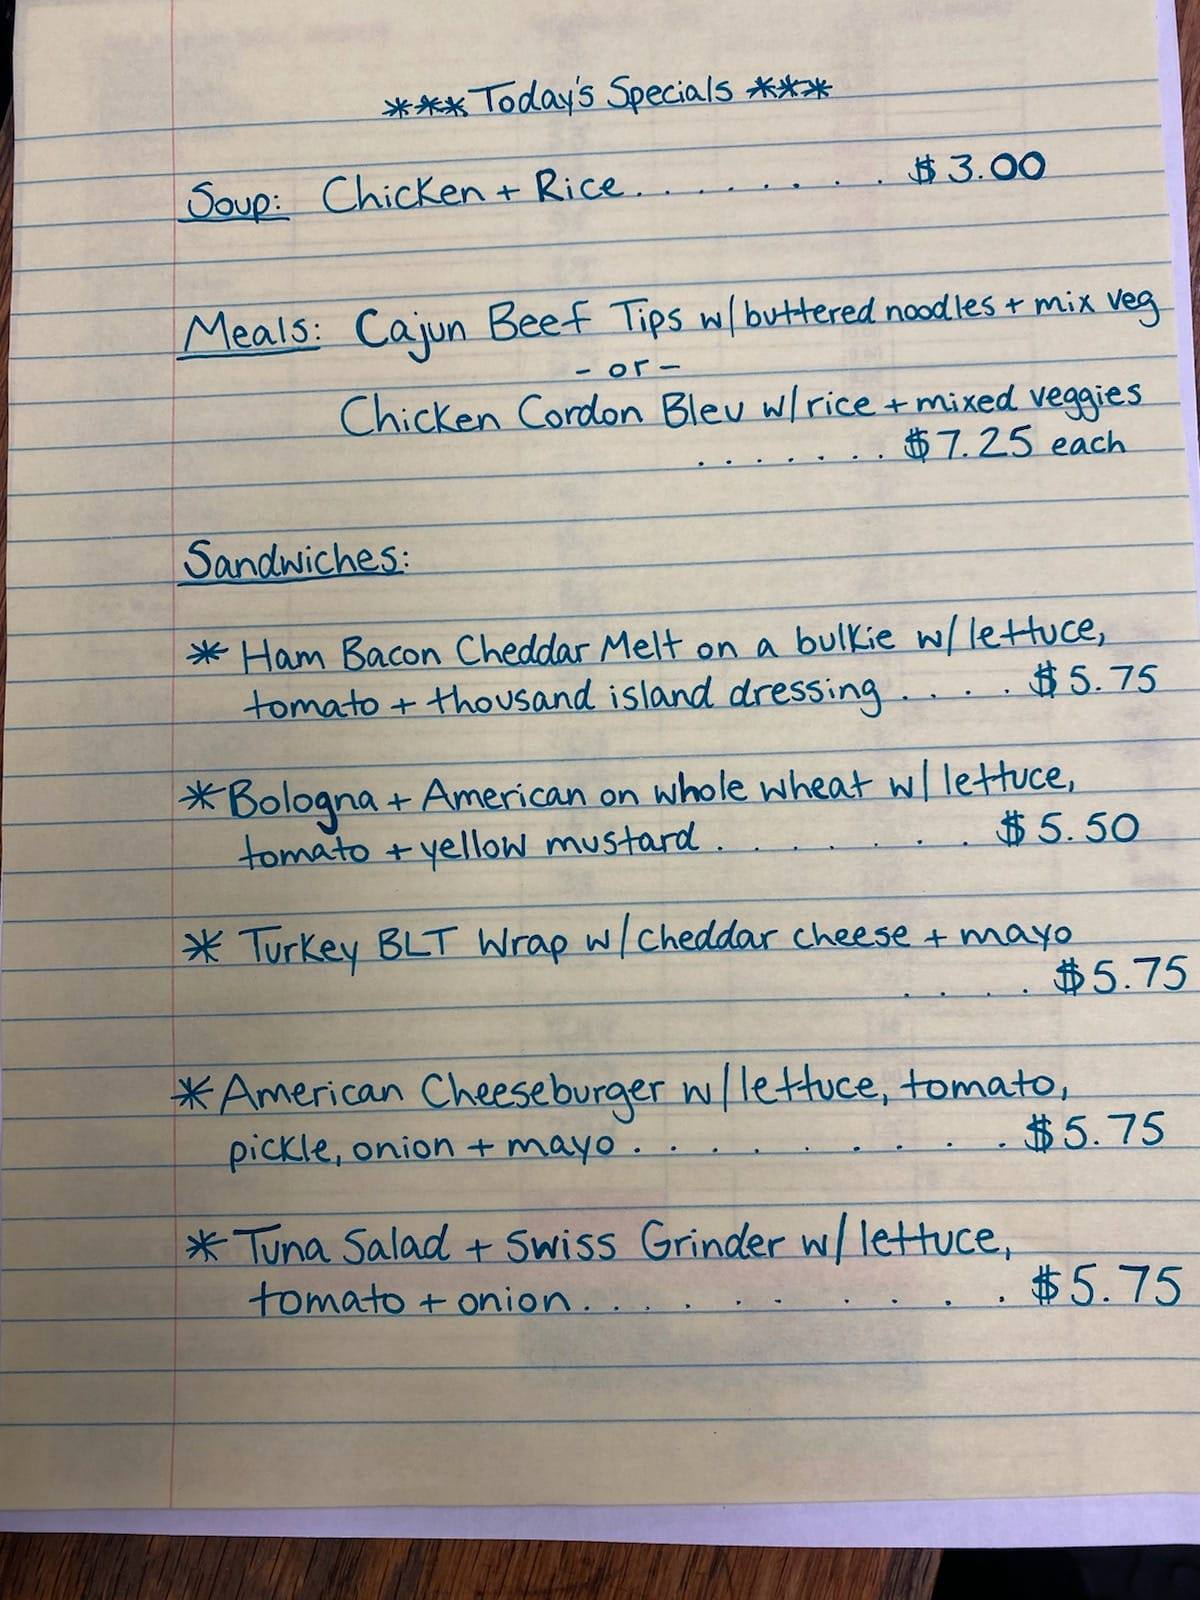 *** Today's Specials ***
Soup: Chicken + Rice. . . . . . . . $3.00
Meals: Cajun Beef Tips w/buttered noodles + mix veg
- or -
Chicken Cordon Bleu w/rice + mixed veggies
. . . . . . . $7.25 each
Sandwiches:
* Ham Bacon Cheddar Melt on a bulkie w/lettuce,
tomato + thousand island dressing . . . . $5.75
* Bologna + American on whole wheat w/ lettuce,
tomato + yellow mustard . . . . . . . $5.50
* Turkey BLT Wrap w/cheddar cheese + mayo
. . . . $5.75
* American Cheeseburger w/lettuce, tomato,
pickle, onion + mayo . . . . . . . . . . $5.75
* Tuna Salad + Swiss Grinder w/ lettuce,
tomato + onion . . . . . . . . . . $5.75